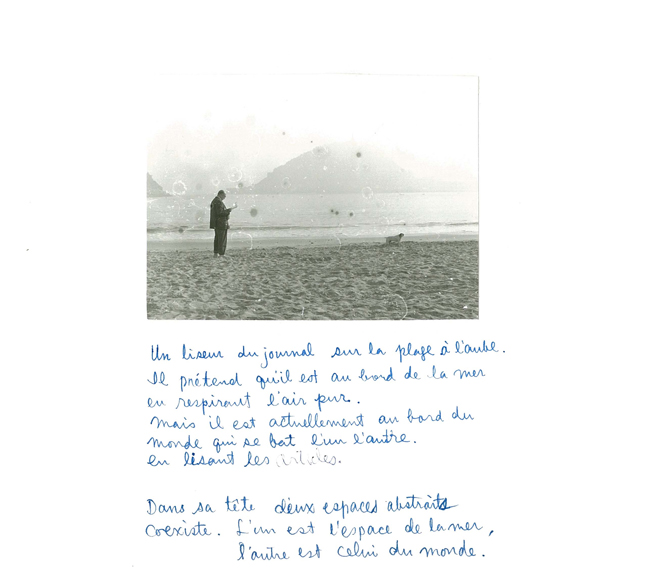 Un liseur du journal sur la plage à l'aube.
Il prétend qu'il est au bord de la mer
en respirant l'air pur.
Mais il est actuellement au bord du
monde qui se bat l'un l'autre.
en lisant les articles.
Dans sa tête deux espaces abstraits
Coexiste. L'un est l'espace de la mer,
l'autre est celui du monde.